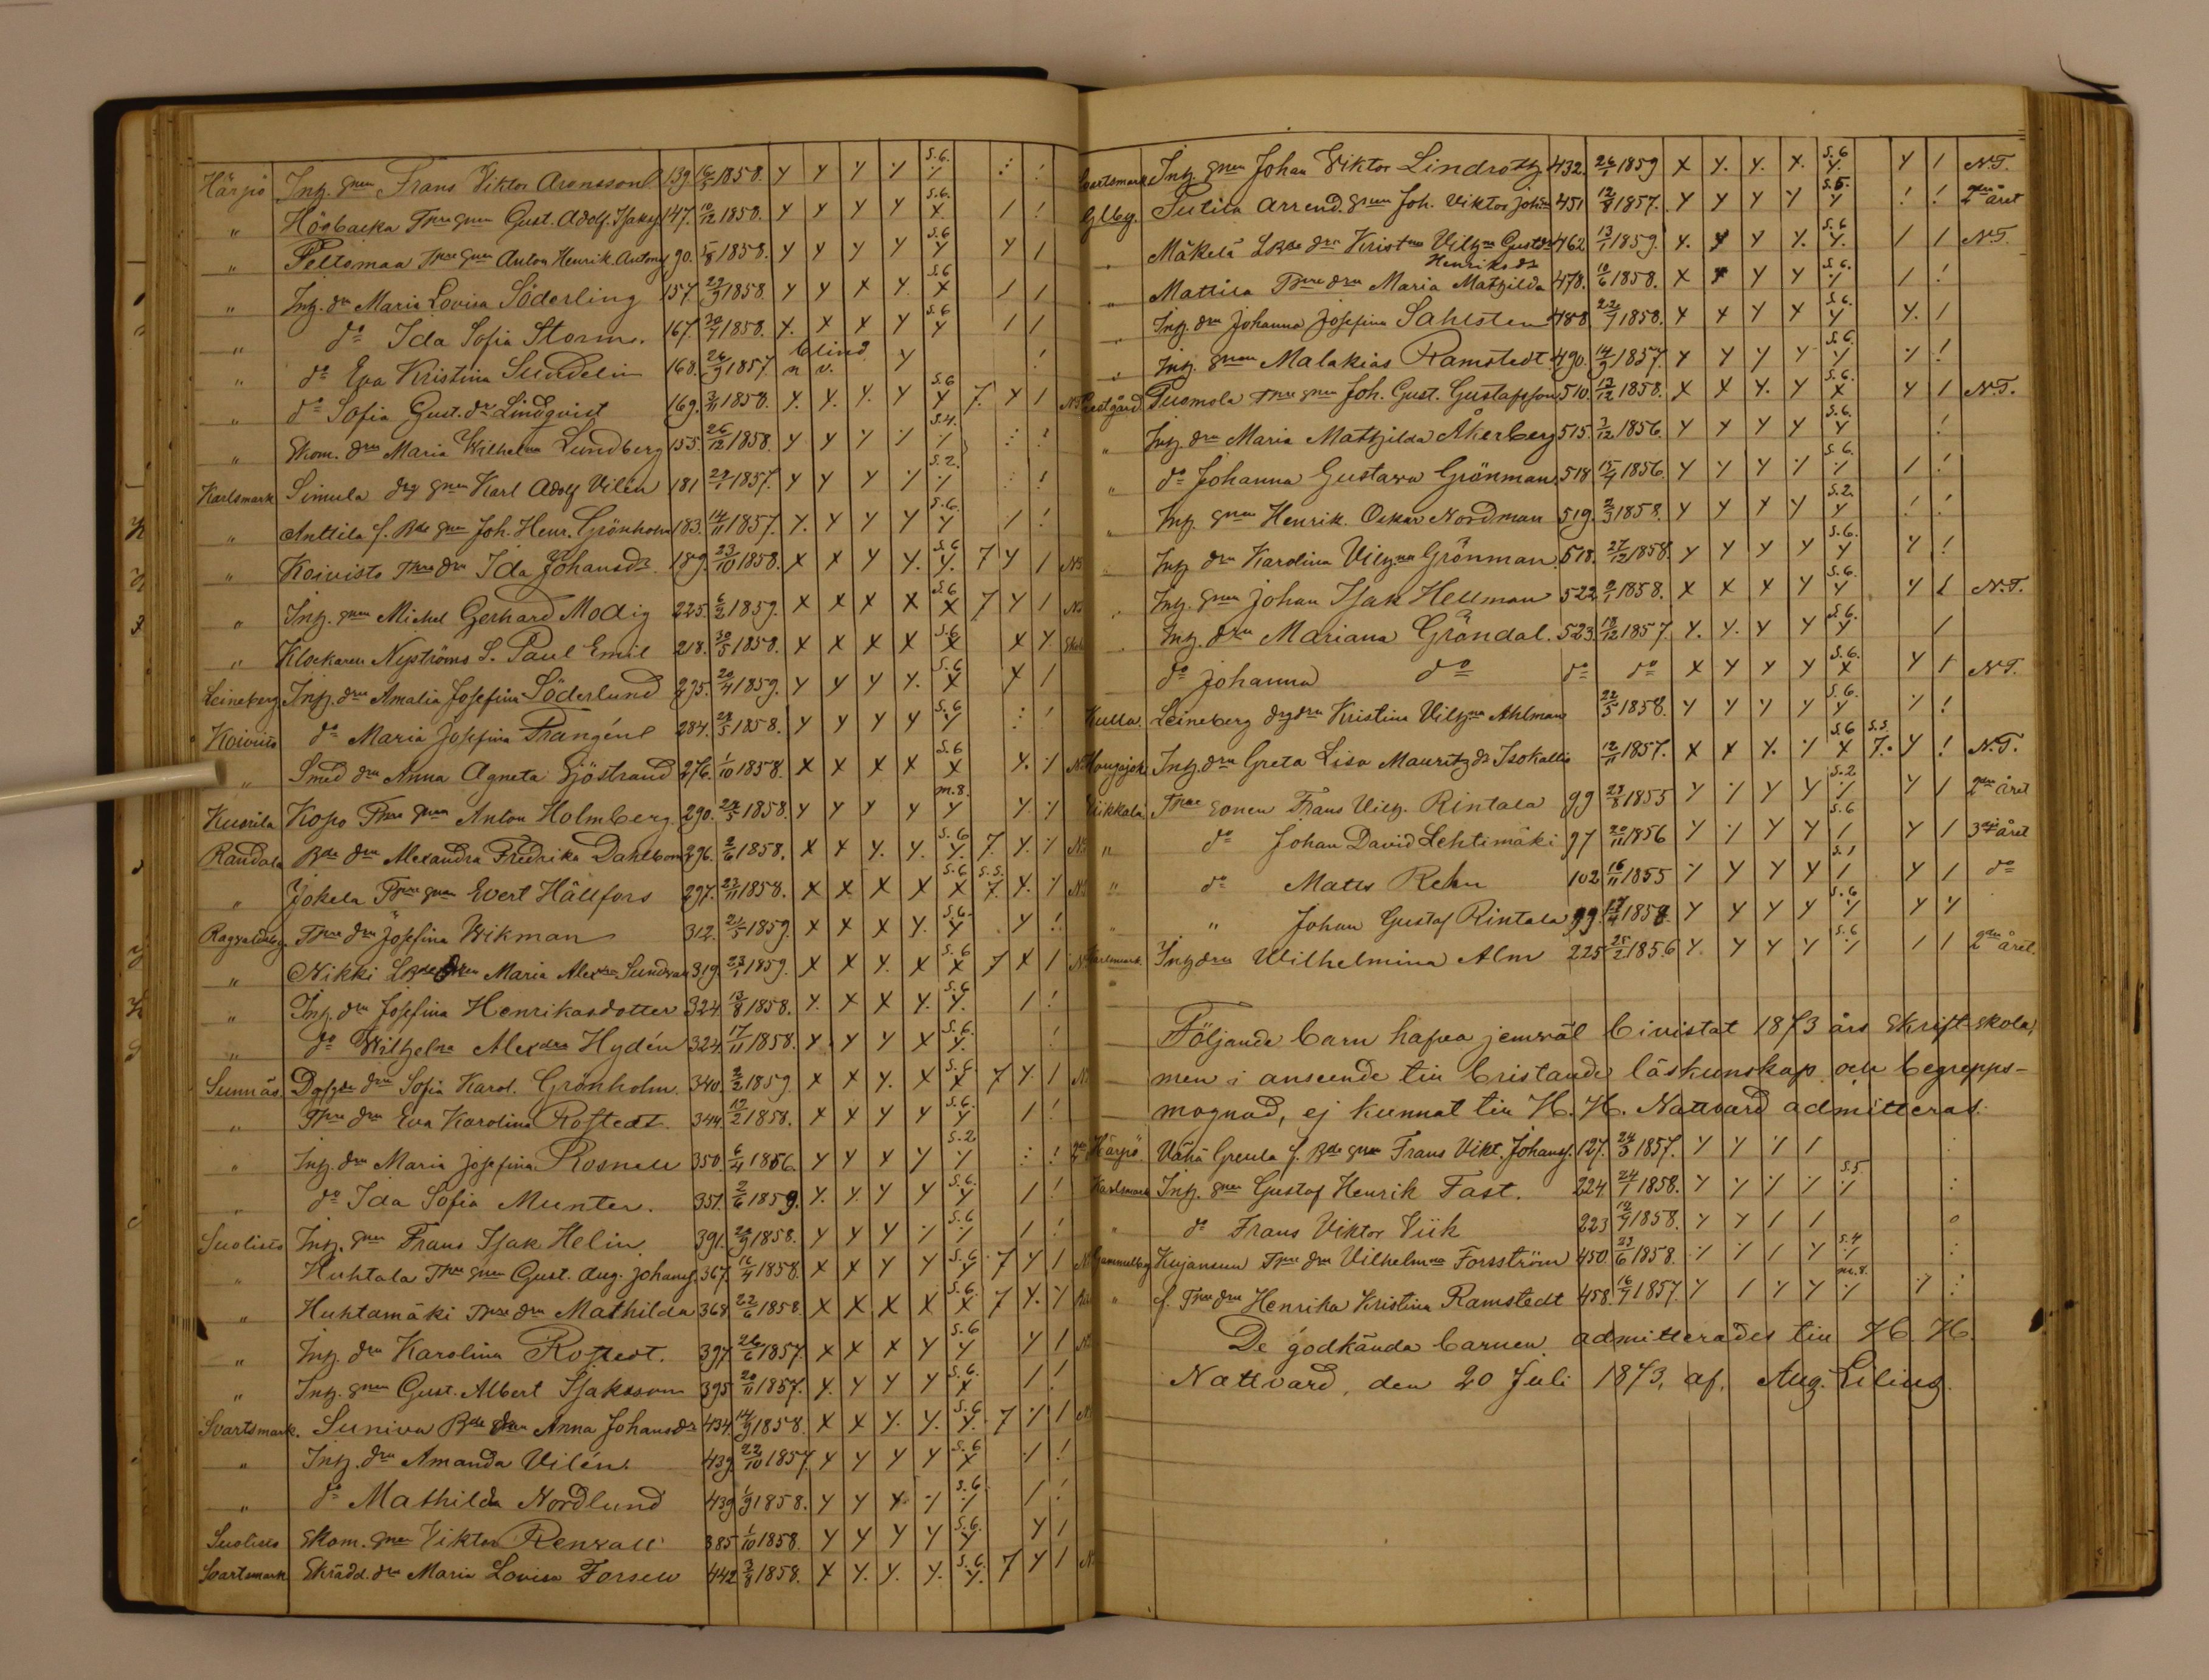 Härpö Inh. gsn Frans Viktor Aronsson 139. 16/5 1858. S. 6.
" Högbacka Tpre gsn Gust. Adolf. Isaks. 147. 10/12 1858. S. 6.
" Peltomaa Tpre gsn Anton Henrik Antons 90. 5/8 1858. S. 6
" Inh. dn Maria Lovisa Söderling 157. 29/9 1858. S. 6
" do Ida Sofia Storm. 167. 30/7 1858. S. 6
" do Eva Kristina Sundelin 168. 26/9 1857. blind
" do Sofia Gust. dr Lindqvist 169. 3/11 1858. S. 6 7.
" Skom. drn Maria Wilhelma Lundberg 155. 26/12 1858. S. 4.
Karlsmark Simula drg gsn Karl Adolf Vilén 181 29/1 1857. S. 2.
" Anttila f. Bde gsn Joh. Henr. Grönholm 183. 14/11 1857. S. 6.
" Koivisto Tpre drn Ida Johansdr. 189. 23/10 1858. S. 6 7
" Inh. gsn Michel Gerhard Modig 225. 6/2 1859. S. 6 7
" Klockaren Nyströms S. Paul Emil 218. 30/5 1858. S. 6
Leineberg Inh. drn Amalia Josefina Söderlund 295. 20/4 1859. S. 6
Koivisto do Maria Josefina Frangén 284. 28/5 1858. S. 6
" Smed drn Anna Agneta Sjöstrand 276. 1/10 1858. S. 6
Kuorila Kopo Tpre gsn Anton Holmberg. 290. 28/5 1858. m. 8.
Randala Bde drn Alexandra Fredrika Dahlbom 296. 2/6 1858. S. 6 7.
" Jokela Tpre gsn Evert Hällfors 297. 23/11 1858. S. 6 S. S. 7.
Ragvaldsby. Tpre drn Josefina Wikman 312. 21/5 1859. S. 6.
" Nikki Lbde drn Maria Alexdra Sundvall 319. 23/1 1859. S. 6 7
" Inh. drn Josefina Henriksdotter 324. 13/8 1858. S. 6
" do Wilhelma Alexdra Hydén 324. 17/11 1858. S. 6.
Sunnäs Drgsde drn Sofia Karol. Grönholm. 340. 2/2 1859. S. 6 7
" Tpre drn Eva Karolina Rostedt. 344. 19/2 1858. S. 6.
" Inh. drn Maria Josefina Rosnell 350. 6/4 1856. S. 2
" do Ida Sofia Munter. 351. 2/6 1859. S. 6.
Suolisto Inh. gsn Frans Isak Helin. 391. 20/9 1858. S. 6
" Huhtala Tpre gsn Gust. Aug. Johans. 367. 16/4 1858. S. 6 7
" Huhtamäki Tpre drn Mathilda 368 22/6 1858. S. 6. 7
" Inh. drn Karolina Rostedt. 397 26/6 1857. S. 6
" Inh. gsn Gust. Albert Isaksson 395 20/11 1857. S. 6.
Svartsmark. Suniva Bde drn Anna Johansdr 434. 14/9 1858. S. 6 7
" Inh. drn Amanda Vilén. 439. 22/10 1857. S. 6
" do Mathilda Nordlund 439 1/9 1858. S. 6.
Suolisto Skom. gsn Viktor Renvall 385 1/10 1858. S. 6.
Svartsmark Skrädd. drn Maria Lovisa Forsell 442 3/8 1858. S. 6. 7
Svartsmark Inh. gsn Johan Viktor Lindroth 432. 26/1 1859 S. 6 N.T.
Glby. Sutila Arrend. gsn Joh. Viktor Johs 451 12/8 1857. S. 5. 2dra året
" Mäkelä Lbde drn Kristina Vilhma Gustdr 462. 13/1 1859. S. 6 N.T.
Henriksdr
" Mattila Tpre drn Maria Mathilda 478. 10/6 1858. S. 6.
" Inh. drn Johanna Josefina Sahlsten 488 22/7 1858. S. 6.
" Inh. gsn Malakias Ramstedt 490. 14/9 1857. S. 6.
Prestgård Tuomola Tpre gsn Joh. Gust. Gustafsson 510. 12/12 1858. S. 6. N.T.
" Inh. drn Maria Mathilda Åkerberg 515. 3/12 1856. S. 6.
" do Johanna Gustava Grönman 518. 15/4 1856. S. 6.
" Inh. gsn Henrik. Oskar Nordman 519. 2/3 1858. S. 2.
" Inh. drn Karolina Vilhma Grönman 518. 27/12 1858. S. 6.
" Inh. gsn Johan Isak Hellman 522. 9/1 1858. S. 6. N.T.
" Inh. drn Mariana Gröndal. 523. 18/12 1857. S. 6.
do Johanna do do do S. 6. N.T.
Kulla. Leineberg drgdrn Kristina Vilhma Ahlman 22/5 1858. S. 6.
Inh. drn Greta Lisa Mauritzdr Isokallio 12/11 1857. S. 6 S. S. 7. N.T.
Wikkala Tpre sonen Frans Vilh. Rintala 99 23/8 1855 S. 2 2dra året
" do Johan David Lehtimäki 97 20/11 1856 S. 6 3dje året
" do Matts Rehn 102 16/11 1855 S. 1 do
" " Johan Gustaf Rintala 99. 1858. S. 6
Karlsmark. Inh drn Wilhelmina Alm 225 25/2 1856 S. 6 2dra året.
Följande barn hafva jemväl bivistat 1873 års Skriftskola,
men i anseende till bristande läskunskap och begrepps-
mognad, ej kunnat till H. H. Nattvard admitteras:
Härpö. Vähä Greula f. Bde gsn Frans Vikt. Johans. 127. 24/3 1857.
Karlsmark Inh. gsn Gustaf Henrik Fast. 224. 24/1 1858. S. 5.
" do Frans Viktor Viik 223 12/9 1858.
Gammelby Kujansuu Tpre drn Vilhelmina Forsström 450 23/6 1858. S. 4
" f. Tpre drn Henrika Kristina Ramstedt 458. 16/7 1857. m. 8.
De godkända barnen admitterades till H. H.
Nattvard, den 20 Juli 1873, af, Aug. Lilius.